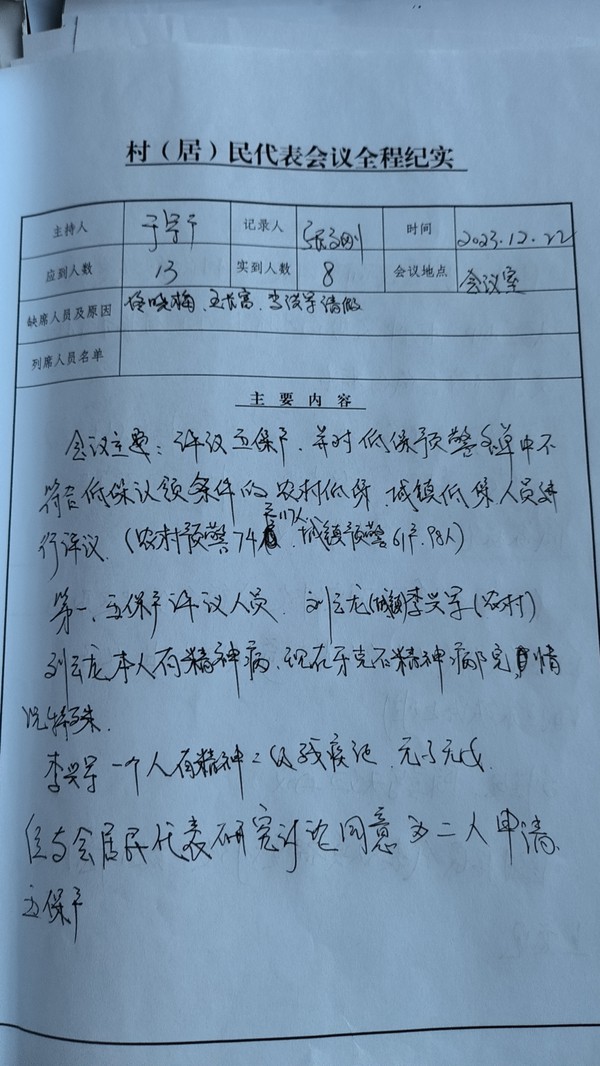 村（居）民代表会议全程纪实
主持人 记录人 时间 2023.12.22
应到人数 13 实到人数 8 会议地点 会议室
缺席人员及原因 晓梅、王长富、李洪军请假
列席人员名单
主要内容
会议主要：评议五保户，并对低保预警名单中不
符合低保认领条件的农村低保、城镇低保人员进
行评议。（农村预警74户117人、城镇预警61户.98人）
第一、五保户评议人员 刘云龙(城镇)李兴军(农村)
刘云龙本人有精神病、现在牙克石精神病院，情
况特殊.
李兴军一个人有精神二级残疾证、无子无女.
经与会居民代表研究讨论同意为二人申请
五保户